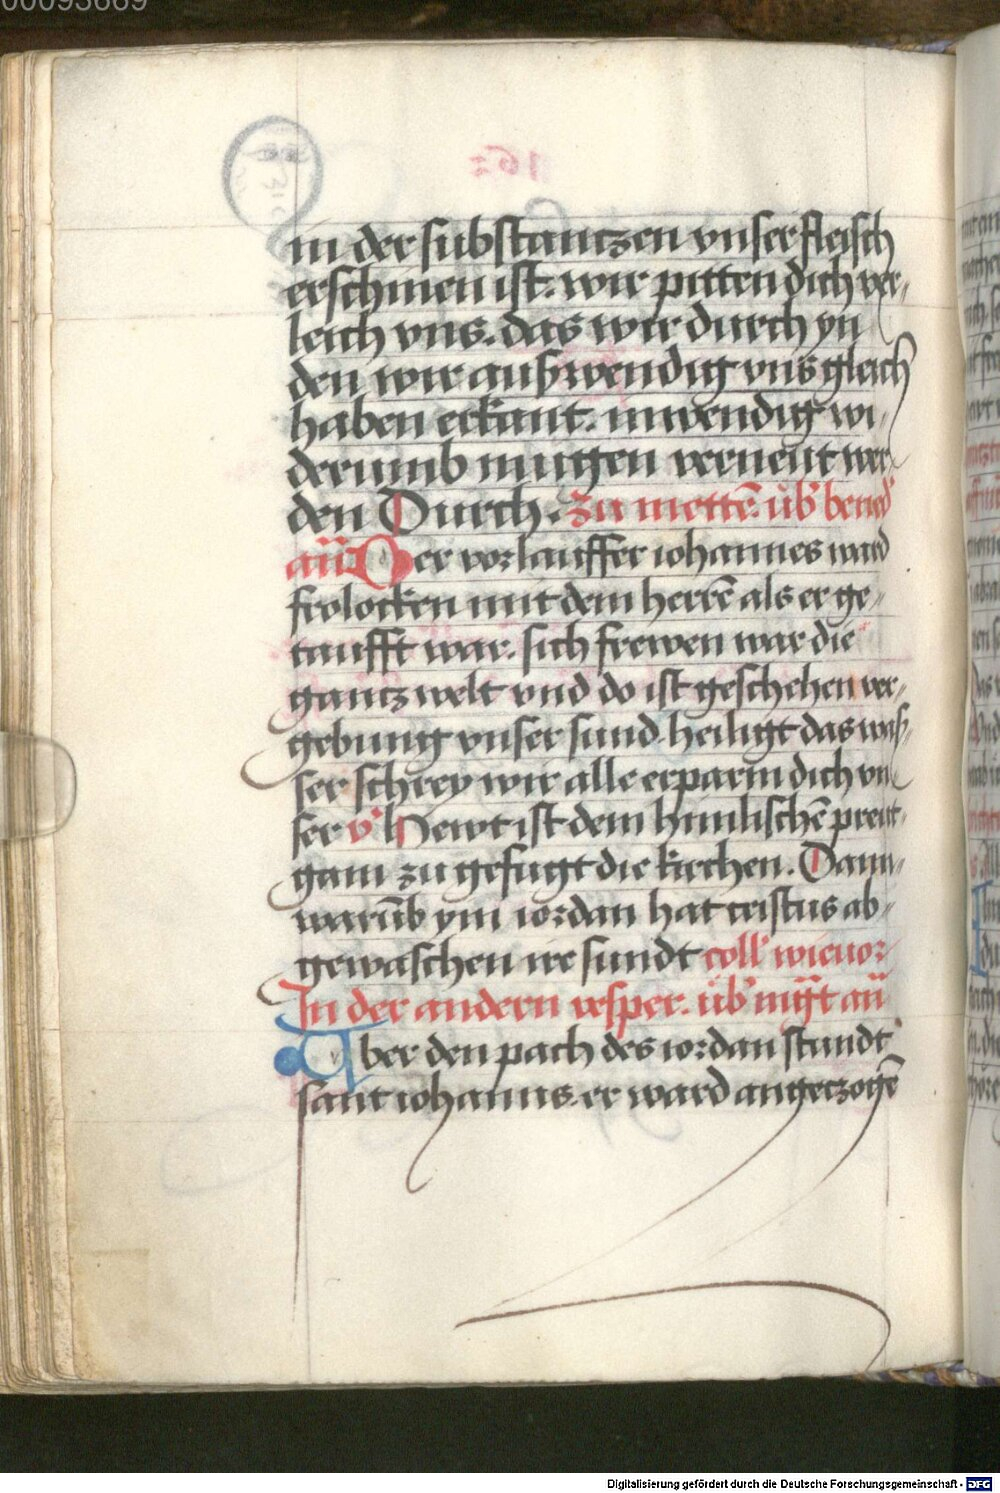 00093669
in der substantzen vnser fleisch
erschinen ist. wir pitten dich ver-
leich vns. das wir durch yn
den wir außwendig vns gleich
haben erkant. inwendig wi-
derumb mugen verneut wer-
den Durch. zu mettē. üb' bened'
añ Der vorlauffer iohannes ward
frolocken mit dem herrē als er ge-
taufft war. sich frewen war die
gantz welt vnd do ist geschehen ver-
gebung vnser sund. heiligt das waß-
ser schrey wir alle erparm dich vn-
ser v' Hewt ist dem himlischē preut-
gam zu gefugt die kirchen. Dann-
warūb ym iordan hat cristus ab-
gewaschen ire sundt coll' wie vor
In der andern vesper. üb' mg̃t añ
Vber den pach des iordan stundt
sant iohanns. er ward angeczogē
Digitalisierung gefördert durch die Deutsche Forschungsgemeinschaft - DFG